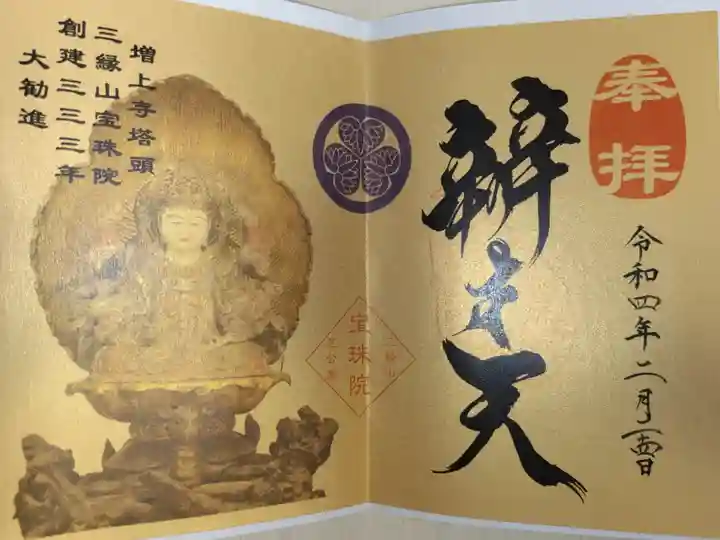 奉拝
辨才天
令和四年二月
増上寺塔頭
三縁山宝珠院
創建三三三年
大勧進
三縁山
宝珠院
芝公園